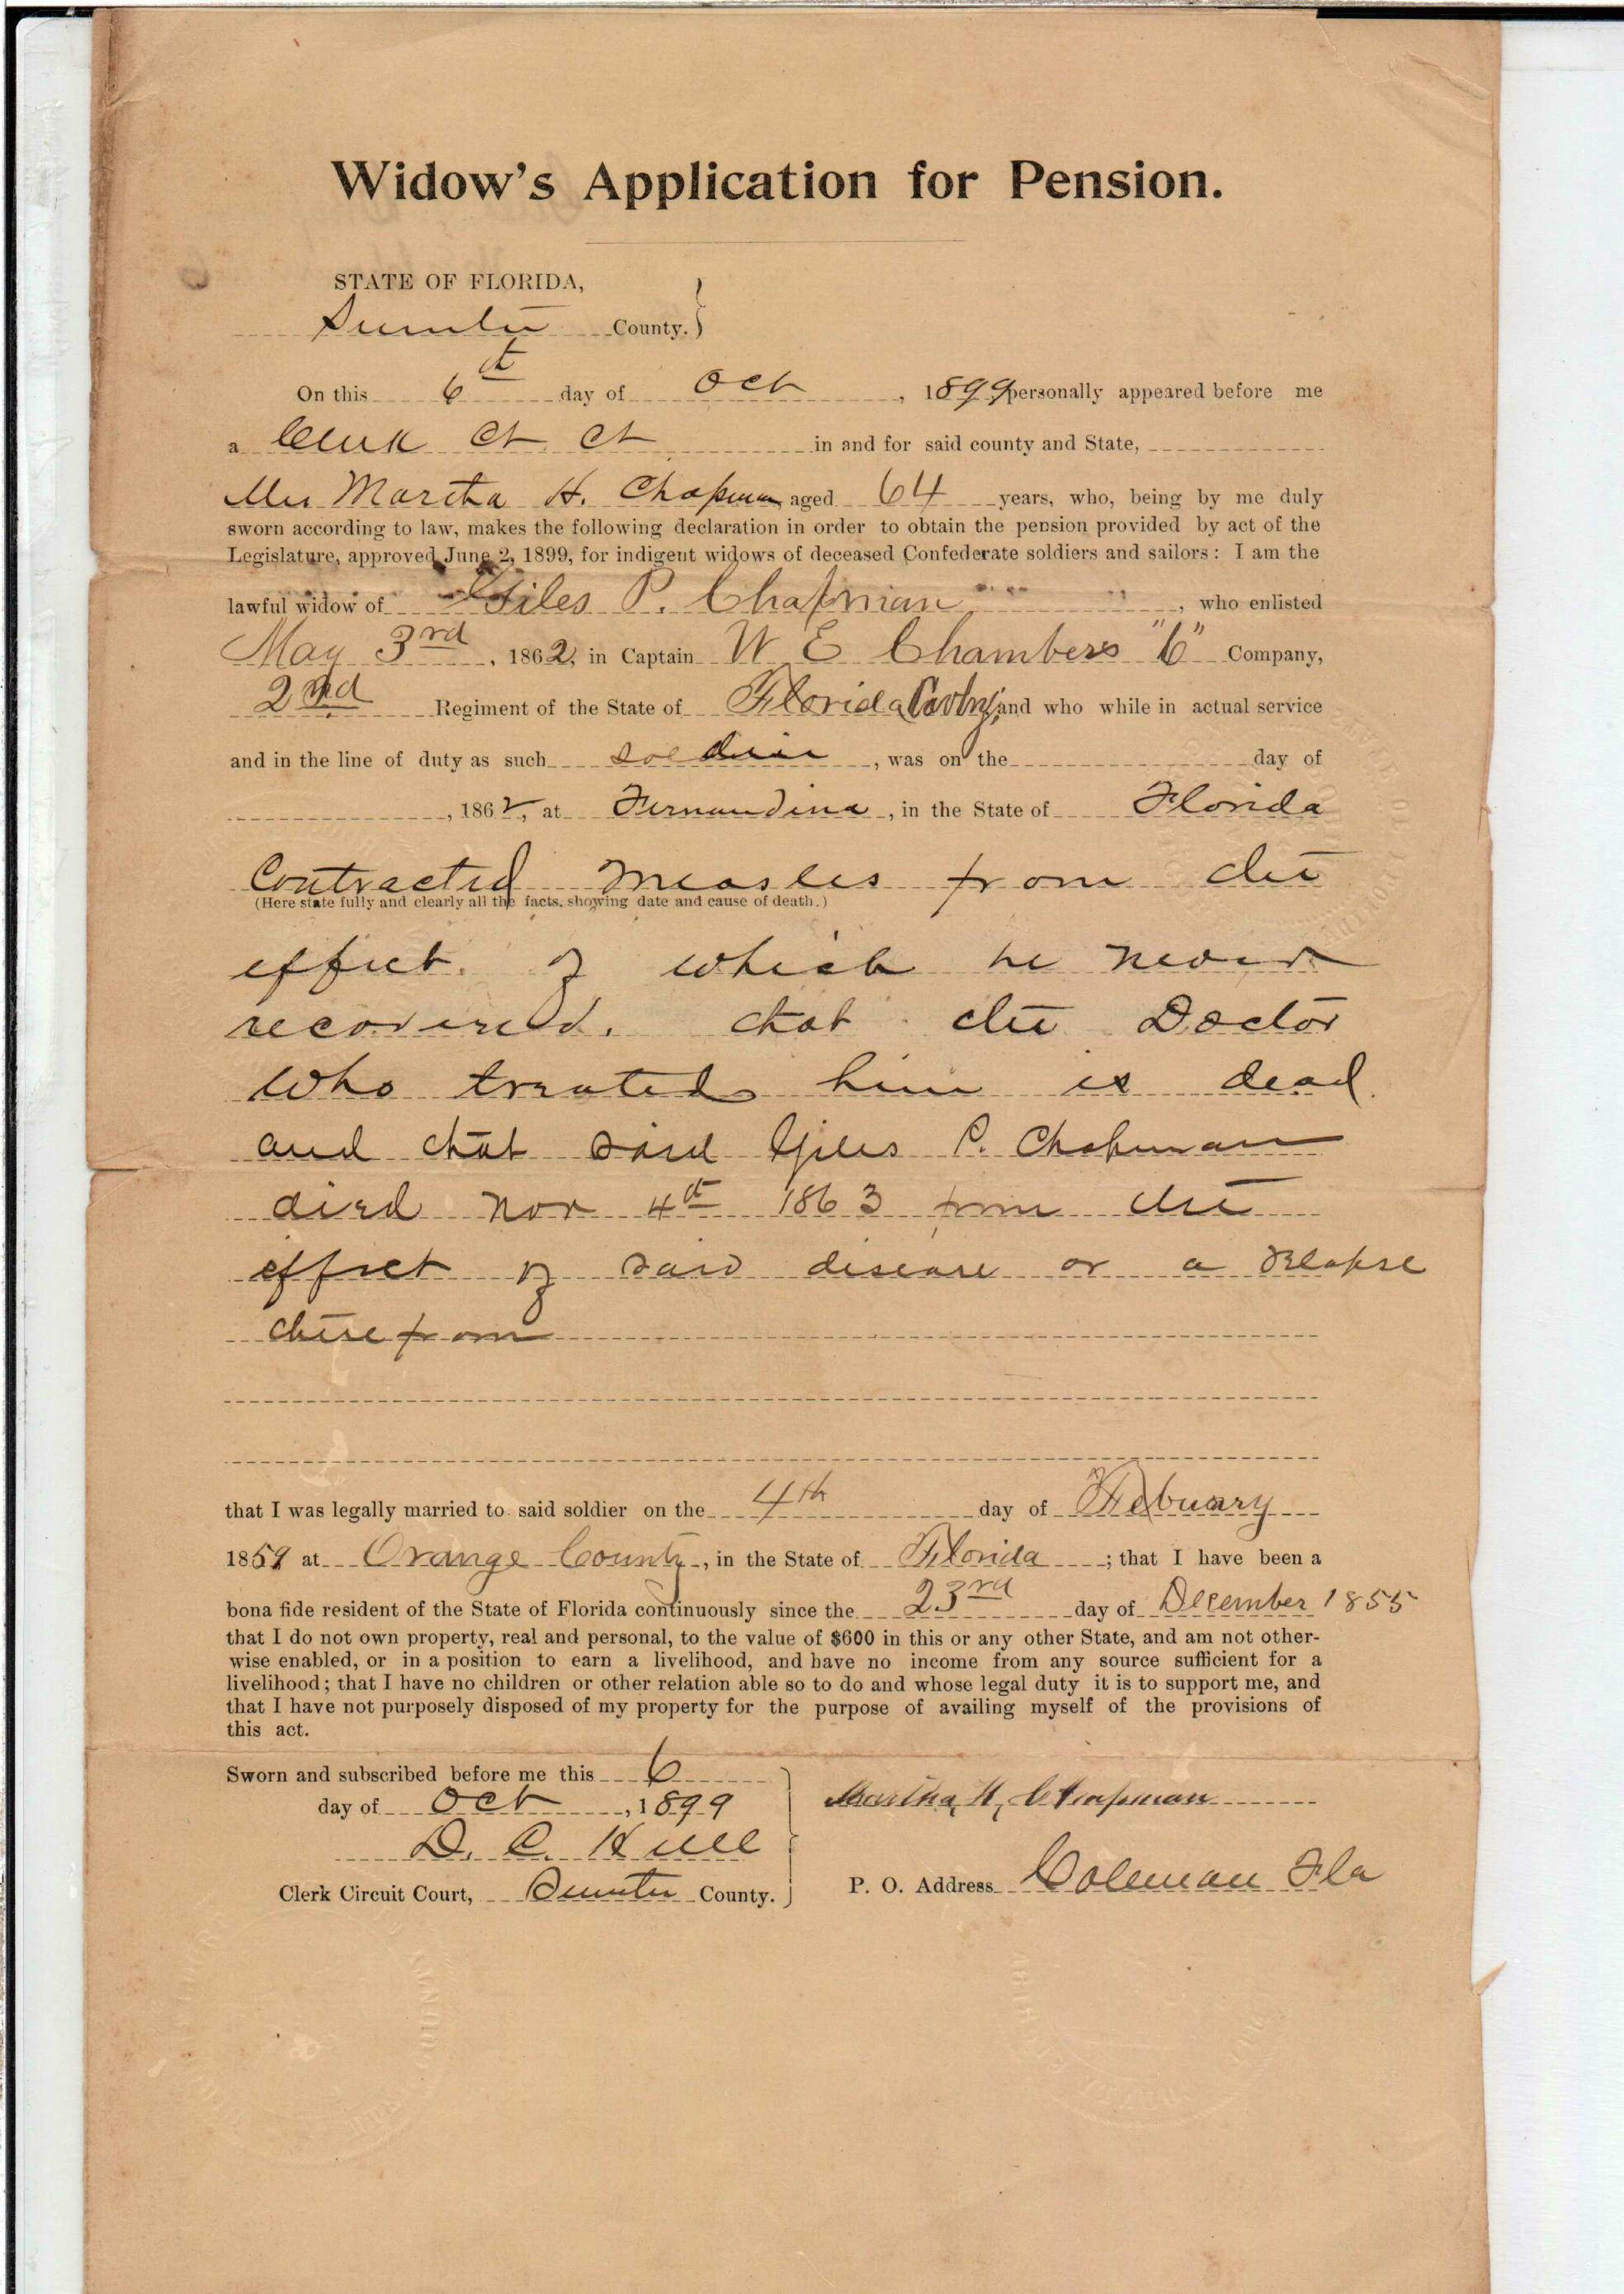 Widow's Application for Pension.
STATE OF FLORIDA,
Sumter County.
On this 6th day of Oct, 1899 personally appeared before me
a Clerk Ct Ct in and for said county and State,
Mrs Martha H. Chapman, aged 64 years, who, being by me duly
sworn according to law, makes the following declaration in order to obtain the pension provided by act of the
Legislature, approved June 2, 1899, for indigent widows of deceased Confederate soldiers and sailors: I am the
lawful widow of Giles P. Chapman, who enlisted
May 3rd, 1862, in Captain W E Chambers "C" Company,
2nd Regiment of the State of Florida Cavlry, and who while in actual service
and in the line of duty as such soldier, was on the day of
, 1862, at Fernandina, in the State of Florida
Contracted measles from the
(Here state fully and clearly all the facts, showing date and cause of death.)
effect of which he never
recovered. that the Doctor
who treated him is dead
and that said Giles P. Chapman
died Nov 4th 1863 from the
effect of said disease or a relapse
therefrom
that I was legally married to said soldier on the 4th day of Febuary
1859 at Orange County, in the State of Florida; that I have been a
bona fide resident of the State of Florida continuously since the 23rd day of December 1855
that I do not own property, real and personal, to the value of $600 in this or any other State, and am not other-
wise enabled, or in a position to earn a livelihood, and have no income from any source sufficient for a
livelihood; that I have no children or other relation able so to do and whose legal duty it is to support me, and
that I have not purposely disposed of my property for the purpose of availing myself of the provisions of
this act.
Sworn and subscribed before me this 6
day of Oct, 1899
Martha, H, Chapman
D. C. Hull
Clerk Circuit Court, Sumter County.
P. O. Address Coleman Fla